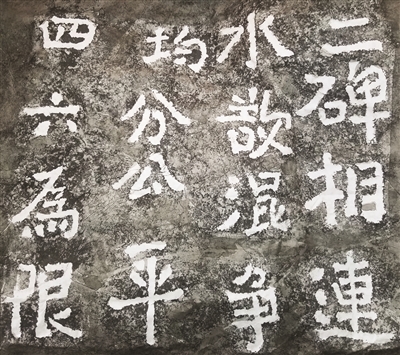 二碑相連
水歃混争
均分公平
四六為限